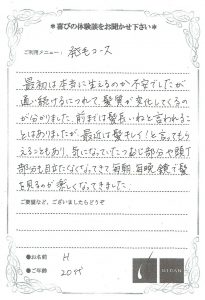 ＊喜びの体験談をお聞かせ下さい＊
ご利用メニュー：発毛コース
最初は本当に生えるのか不安でしたが
通い続けるにつれて、髪質が変化してくるの
が分かりました。前までは髪長いねと言われるこ
とはありましたが、最近は髪キレイ！と言ってもら
えることもあり、気になっていたつむじ部分や頭丁
部分も目立たなくなってきて毎朝毎晩鏡で髪
を見るのが楽しくなってきました。
ご要望など、ございましたらどうぞ
●お名前 H
●ご年齢 20代